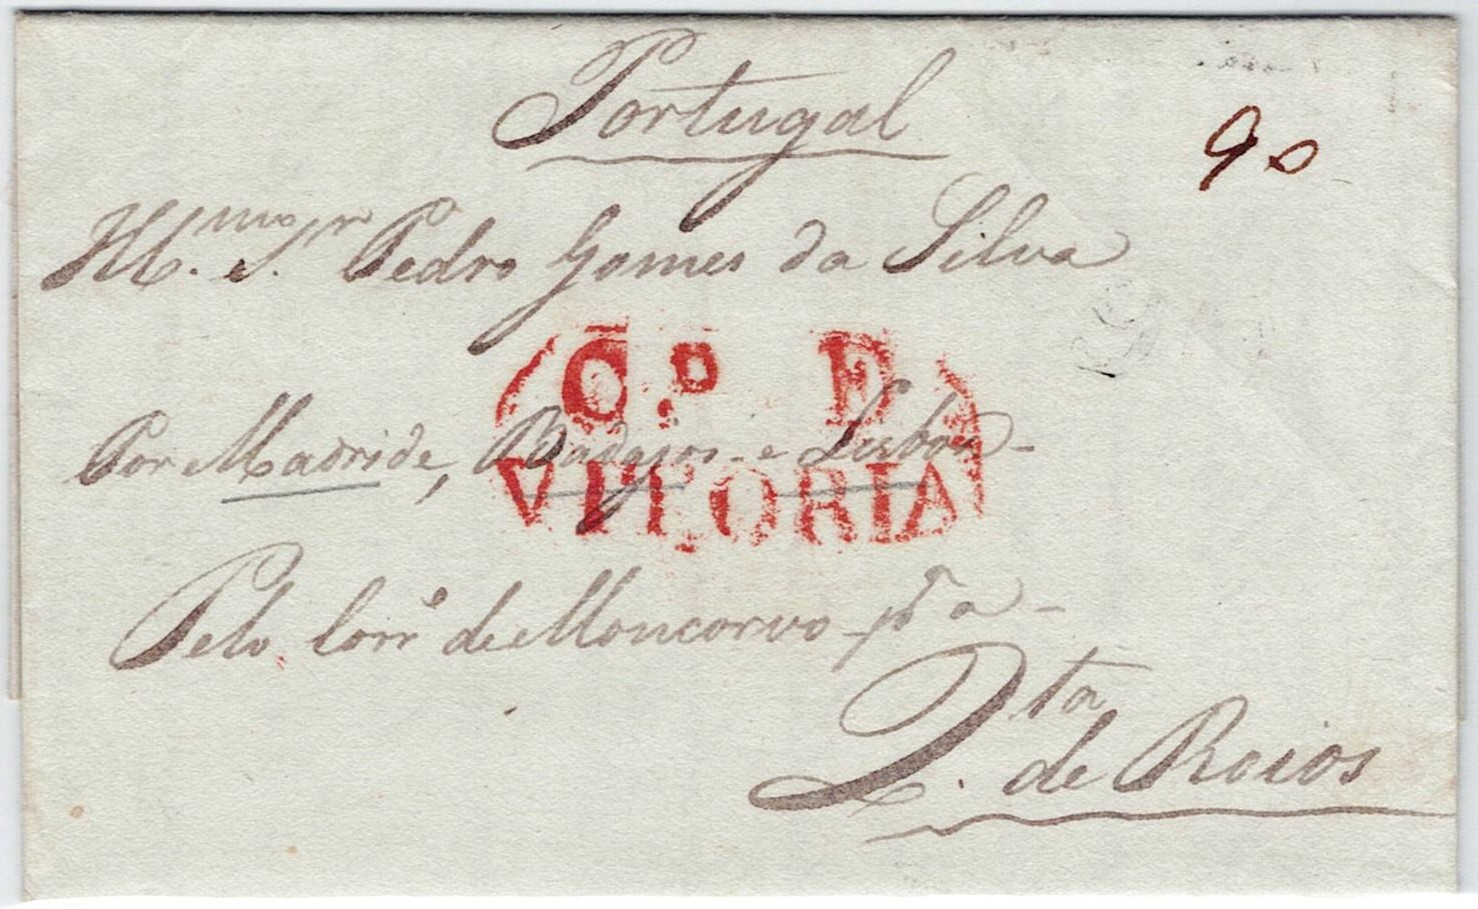 Portugal
90
Ill.mo S.r Pedro Gomes da Silva
C.o D
Por Madride, Badajos e Lisboa
VITORIA
Pelo Corr.o de Moncorvo p.a a
Q.ta de Roios